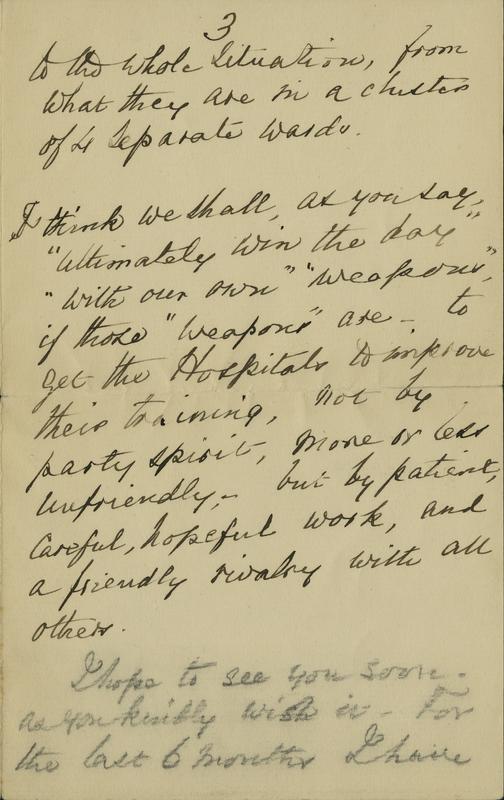 3
to the whole situation, from
what they are in a cluster
of 4 separate wards.
I think we shall, as you say,
"ultimately win the day"
"with our own" "weapons",
if those "weapons" are – to
get the Hospitals to improve
their training, not by
party spirit, more or less
unfriendly, – but by patient,
careful, hopeful work, and
a friendly rivalry with all
others.
I hope to see you soon –
as you kindly wish it – For
the last 6 months I have